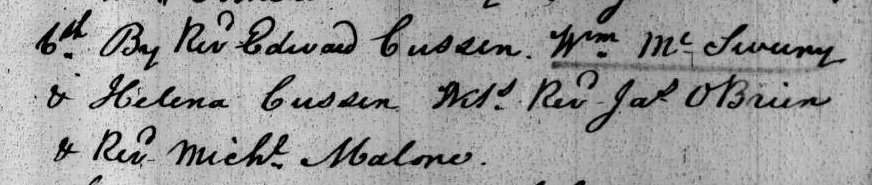 6th. By Revd Edward Cussen. Wm. Mc Sweeny
& Helena Cussen Wts. Revd Jas OBrien
& Revd Michl. Malone.